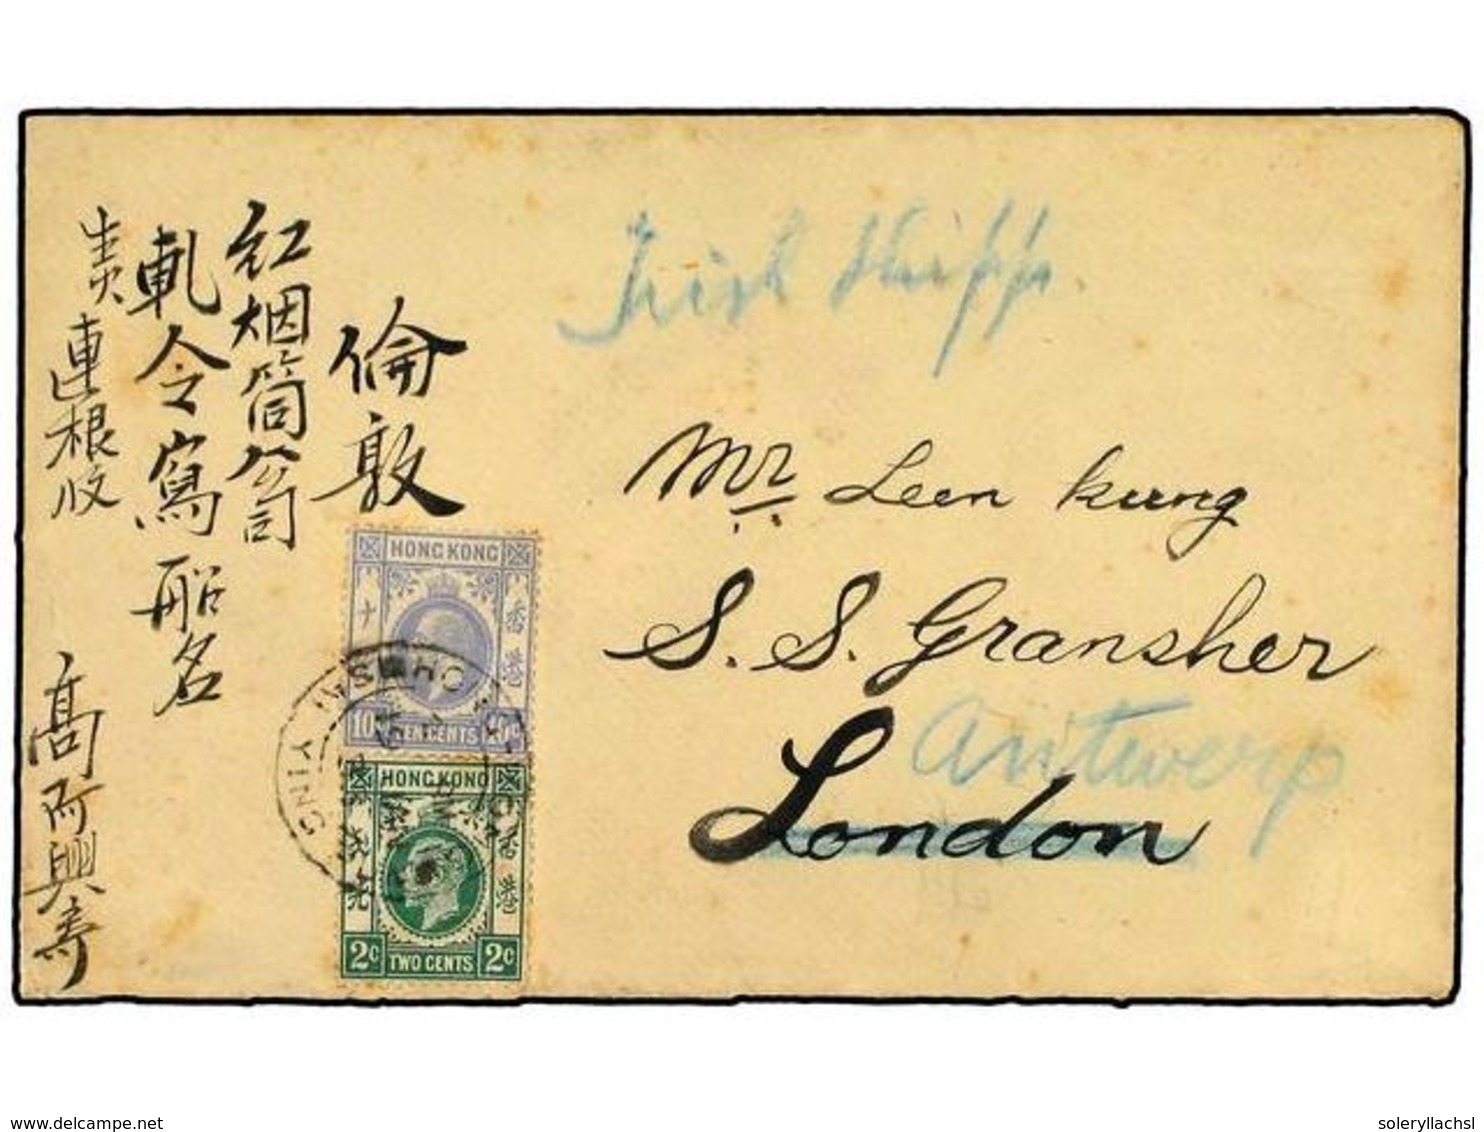 倫敦
紅烟筒公司
軋令寫船名
連根收
高阿興寿
Mr Leen Kung
S. S. Gransher
Antwerp
London
HONG KONG
香港
十
10c TEN CENTS 10c
HONG KONG
香港
2c TWO CENTS 2c
www.delcampe.net
soleryllachsl